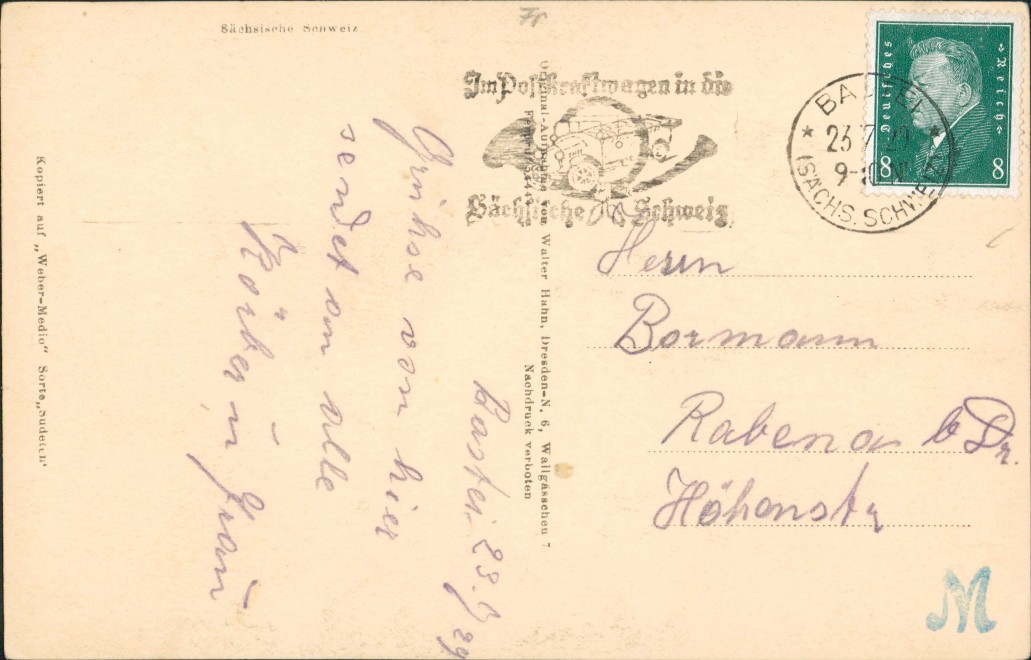 Sächsische Schweiz
Kopiert auf „Weber-Medio“ Sorte „Sudeten“
Bastei. 23.7 29
Grühse von hier
sendet an alle
Körber u Frau
Original-Aufnahme von Walter Hahn, Dresden-N. 6, Wallgässchen 7
Nachdruck verboten
Im Postkraftwagen in die
Sächsische Schweiz
Deutsches Reich
8 8
BASTEI
23.7.29
9-
(SÄCHS. SCHWEIZ)
Herrn
Bormann
Rabena b Dr.
Höhenstr
M